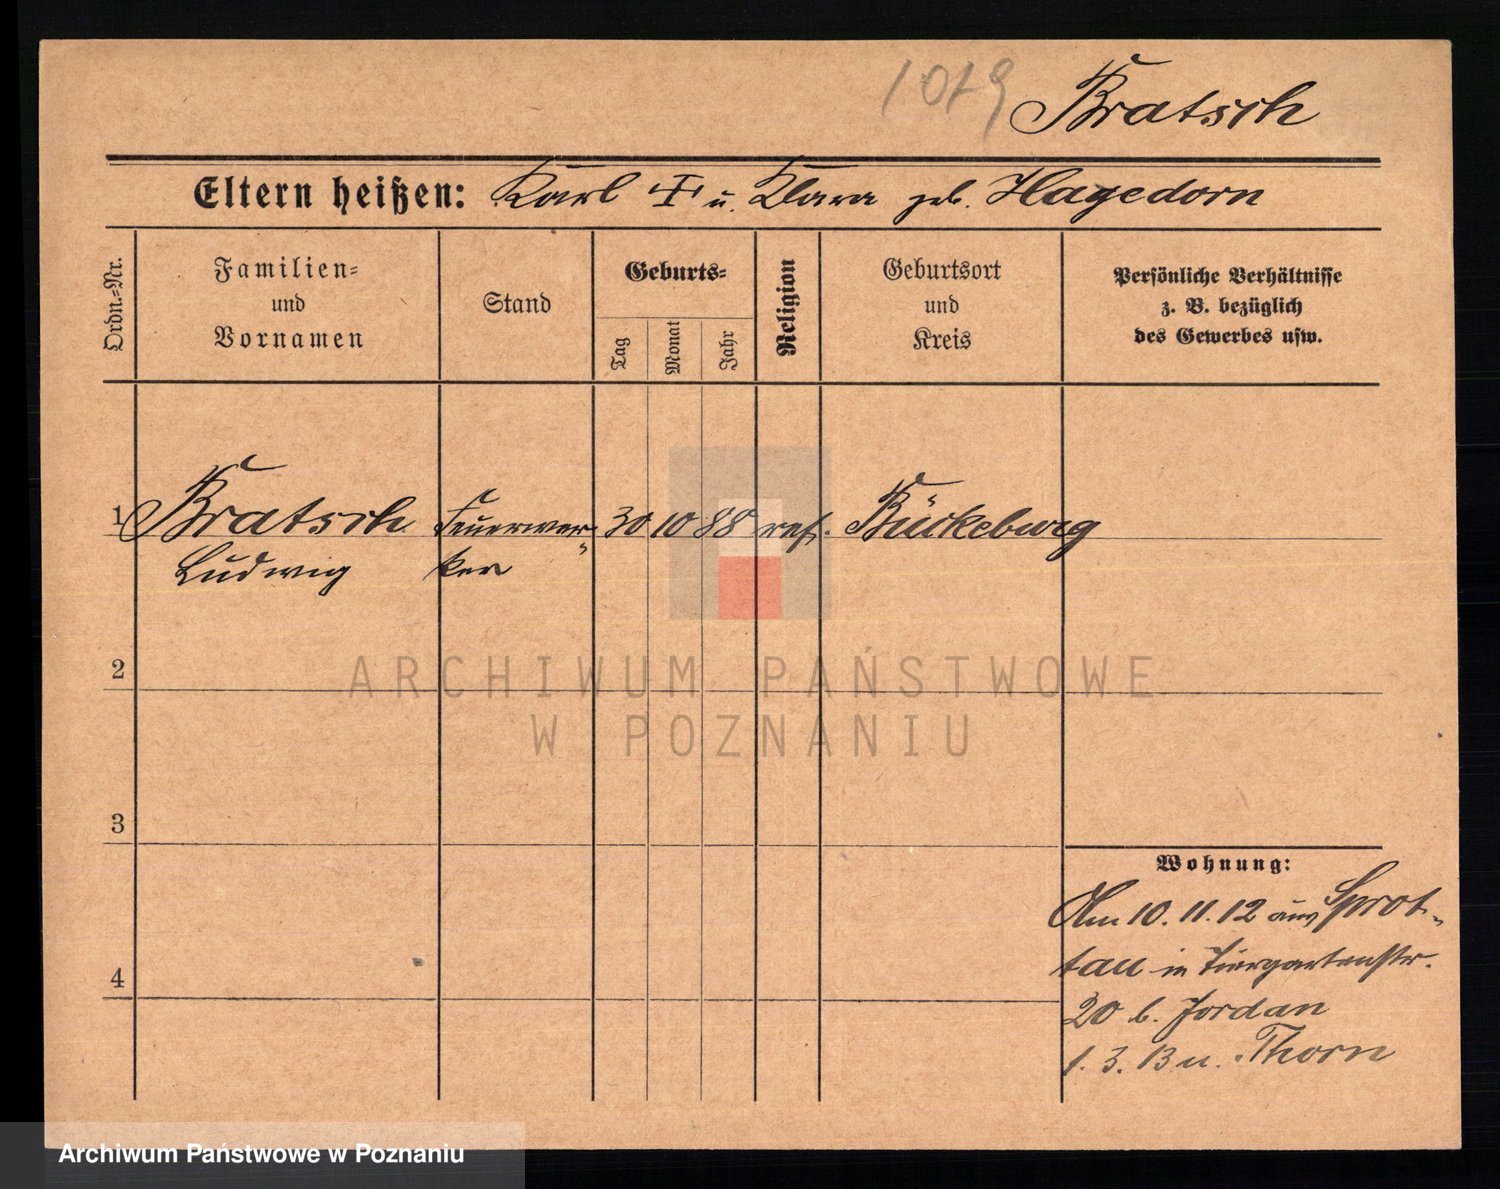 1019 Bratsch
Eltern heißen: Karl † u. Klara geb. Hagedorn
Ordn.-Nr.
Familien-
und
Vornamen
Stand
Geburts-
Tag
Monat
Jahr
Religion
Geburtsort
und
Kreis
Persönliche Verhältnisse
z. B. bezüglich
des Gewerbes usw.
1 Bratsch Feuerwer- 30 10 88 ref. Bückeburg
Ludwig ker
2
ARCHIWUM PAŃSTWOWE
W POZNANIU
3
Wohnung:
Am 10. 11. 12 aus Sprot-
4 tau in Tiergartenstr.
20 b. Jordan
1. 3. 13 n. Thorn
Archiwum Państwowe w Poznaniu